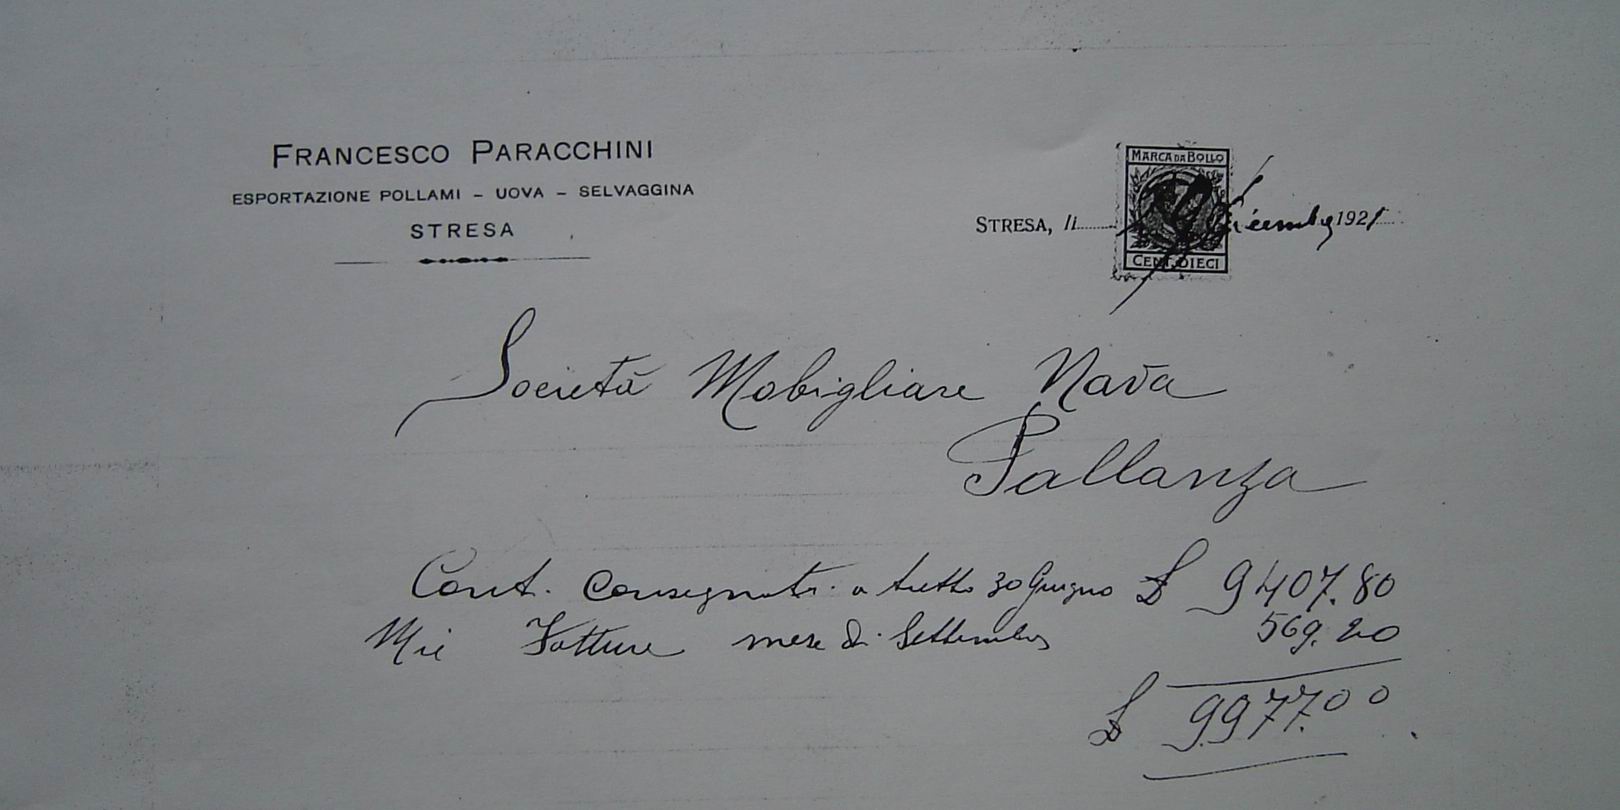 FRANCESCO PARACCHINI
ESPORTAZIONE POLLAMI - UOVA - SELVAGGINA
STRESA
MARCA DA BOLLO
CENT. DIECI
STRESA, li 1921
Società Mobigliare Nava
Pallanza
Cont. Consegnati a tutto 30 Giugno £ 9407.80
Mie Fatture mese di Settembre 569.20
£ 9977.00